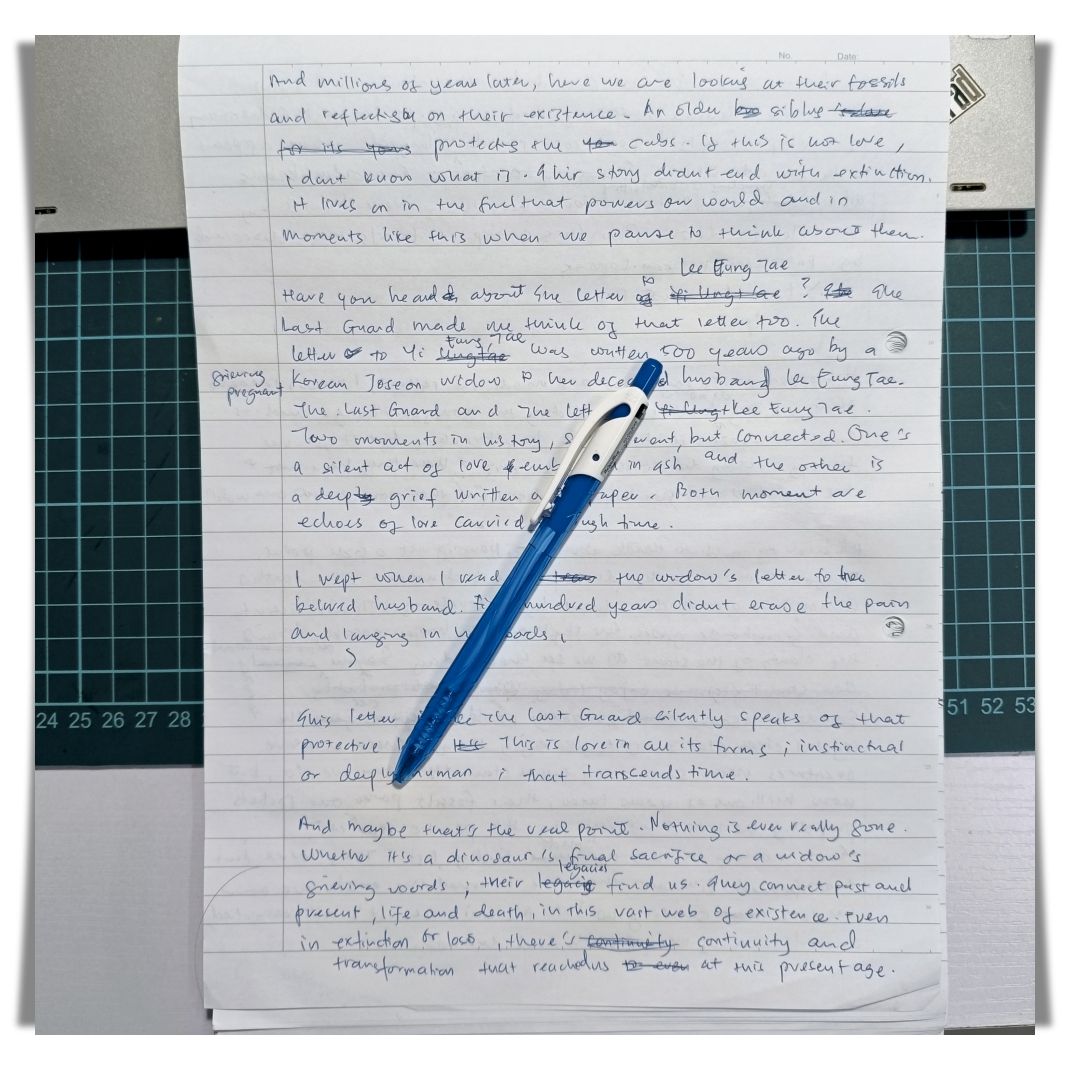 No. Date:
And millions of years later, here we are looking at their fossils
and reflecting on their existence. An older sibling
protecting the cubs. If this is not love,
i don't know what is. Their story didnt end with extinction.
It lives on in the fuel that powers our world and in
moments like this when we pause to think about them.
Lee Eung Tae
Have you heard about the letter to ? The
Last Guard made me think of that letter too. The
Eung Tae
letter to Yi was written 500 years ago by a
grieving
pregnant
Korean Joseon widow to her husband Lee Eung Tae.
The Last Guard and The Lee Eung Tae.
Two moments in history, but connected. One is
a silent act of love in ash and the other is
a deep grief written a Both moment are
echoes of love carried time.
I wept when I read the widow's letter to her
beloved husband. hundred years didnt erase the pain
and longing in
This letter The Last Guard silently speaks of that
protective This is love in all its forms ; instinctual
or deeply human ; that transcends time.
And maybe that's the real point. Nothing is ever really gone.
Whether it's a dinosaur's final sacrifice or a widow's
legacies
grieving words ; their find us. They connect past and
present, life and death, in this vast web of existence. Even
in extinction or loss, there's continuity and
transformation that reached us at this present age.
24 25 26 27 28
51 52 53